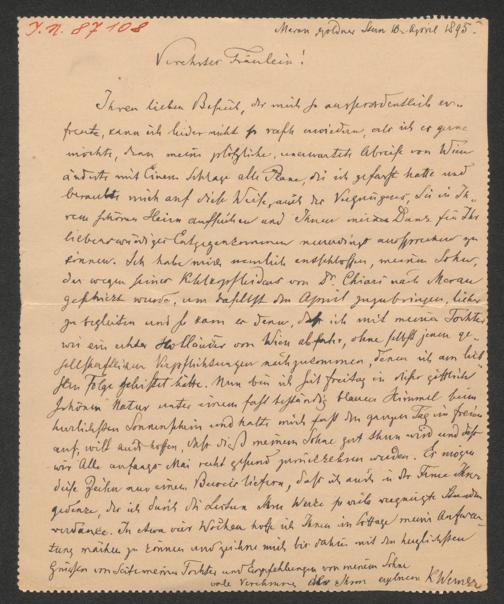 J. N. 87108
Meran, goldner Stern 10. April 1895.
Verehrtes Fräulein!
Ihren lieben Besuch, der mich so ausserordentlich er-
freute, kann ich leider nicht so rasch erwiedern, als ich es gerne
möchte, denn meine plötzliche, unerwartete Abreise von Wien
änderte mit Einem Schlage alle Plane, die ich gefasst hatte und
beraubte mich auf diese Weise, auch des Vergnügens, Sie in Ih-
rem schönen Heim aufsuchen und Ihnen meinen Dank für Ihr
liebenswürdiges Entgegenkommen neuerdings aussprechen zu
können. Ich habe mich nemlich entschlossen, meinen Sohn,
der wegen seines Kehlkopfleidens von Dr. Chiari nach Meran
geschickt wurde, um daselbst den April zuzubringen, hieher
zu begleiten und so kam es denn, dass ich mit meiner Tochter
wie ein echter Holländer von Wien abfuhr, ohne selbst jenen ge-
sellschaftlichen Verpflichtungen nachzukommen, denen ich am lieb-
sten Folge geleistet hätte. Nun bin ich seit Freitag in dieser göttlich
schönen Natur unter einem fast beständig blauen Himmel beim
herrlichsten Sonnenschein und halte mich fast den ganzen Tag im Freien
auf, will auch hoffen, dass diess meinem Sohne gut thun wird und dass
wir Alle anfangs Mai recht gesund zurückkehren werden. Es mögen
diese Zeilen nur einen Beweis liefern, dass ich auch in der Ferne Ihrer
gedenke, der ich durch die Lectüre Ihrer Werke so viele vergnügte Stunden
verdanke. In etwa vier Wochen hoffe ich Ihnen im Cottage meine Aufwar-
tung machen zu können und zeichne mich bis dahin mit den herzlichsten
Grüssen von Seite meiner Tochter und Empfehlungen von meinem Sohne
voll Verehrung als Ihren ergebenen K Werner